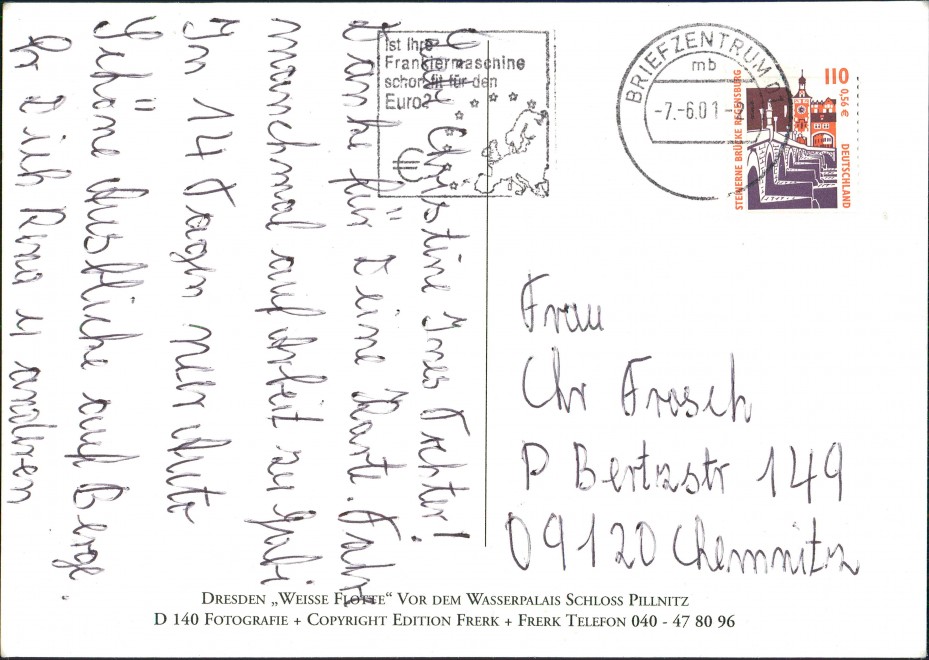 Liebe Christine Ines Tochter!
Danke für Deine Kart. Fahr
manchmal auf Arbeit zu Gabi
In 14 Tagen neu Auto
Schöne Ausblicke auf Berge.
Gr Dich Rma u andren
Ist Ihre
Frankiermaschine
schon fit für den
Euro?
BRIEFZENTRUM
mb
-7.-6.01
110
0,56 €
DEUTSCHLAND
STEINERNE BRÜCKE REGENSBURG
Frau
Chr Frosch
P Bertzstr 149
09120 Chemnitz
DRESDEN „WEISSE FLOTTE" VOR DEM WASSERPALAIS SCHLOSS PILLNITZ
D 140 FOTOGRAFIE + COPYRIGHT EDITION FRERK + FRERK TELEFON 040 - 47 80 96